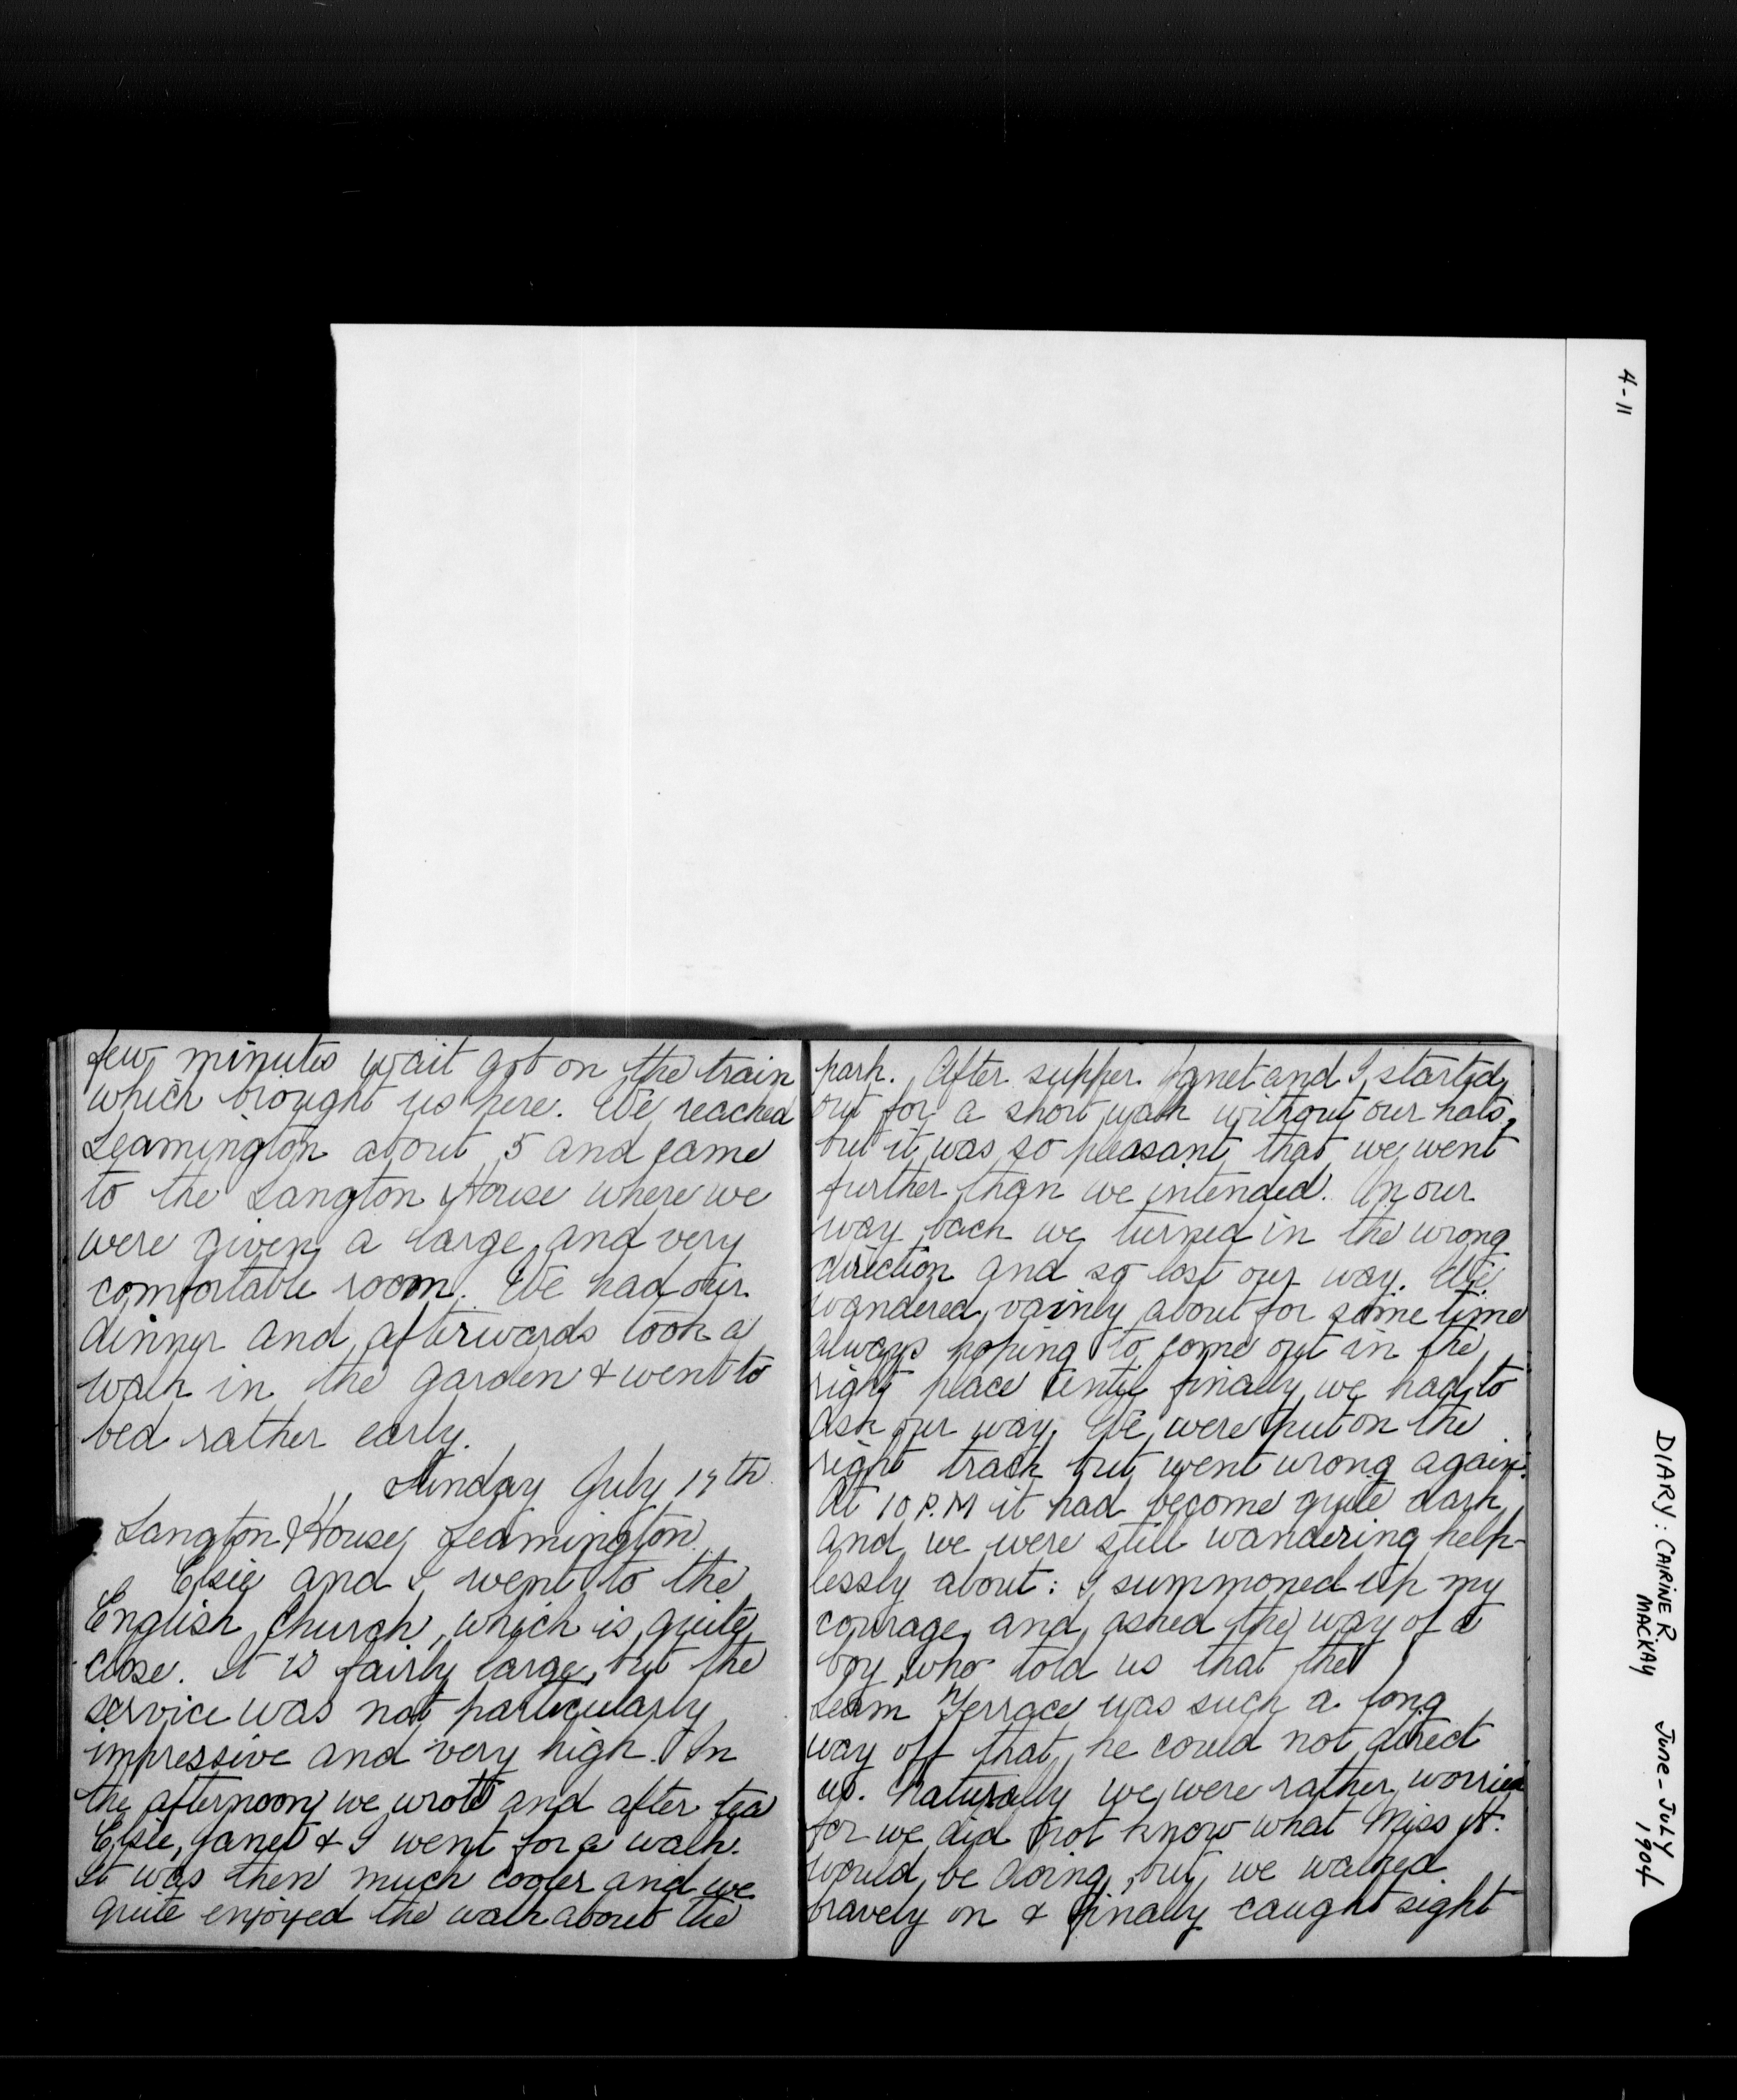 few minutes wait got on the train
which brought us here. We reached
Leamington about 5 and came
to the Langton House where we
were given a large and very
comfortable room. We had our
dinner and afterwards took a
walk in the garden & went to
bed rather early.
Sunday July 17th
Langton House, Leamington.
Elsie and I went to the
English Church, which is quite
close. It is fairly large, but the
service was not particularly
impressive and very high. In
the afternoon we wrote and after tea
Elsie, Janet & I went for a walk.
It was then much cooler and we
quite enjoyed the walk about the
park. After supper Janet and I started
out for a short walk without our hats,
but it was so pleasant that we went
further than we intended. On our
way back we turned in the wrong
direction and so lost our way. We
wandered vainly about for some time
always hoping to come out in the
right place until finally we had to
ask our way. We were put on the
right track but went wrong again.
At 10 P.M it had become quite dark
and we were still wandering help-
lessly about: I summoned up my
courage and asked the way of a
boy who told us that the
Leam Terrace was such a long
way off that he could not direct
us. Naturally we were rather worried
for we did not know what Miss
would be doing, but we walked
bravely on & finally caught sight
4-11
DIARY: CARINE R
MACKAY
JUNE-JULY
1904